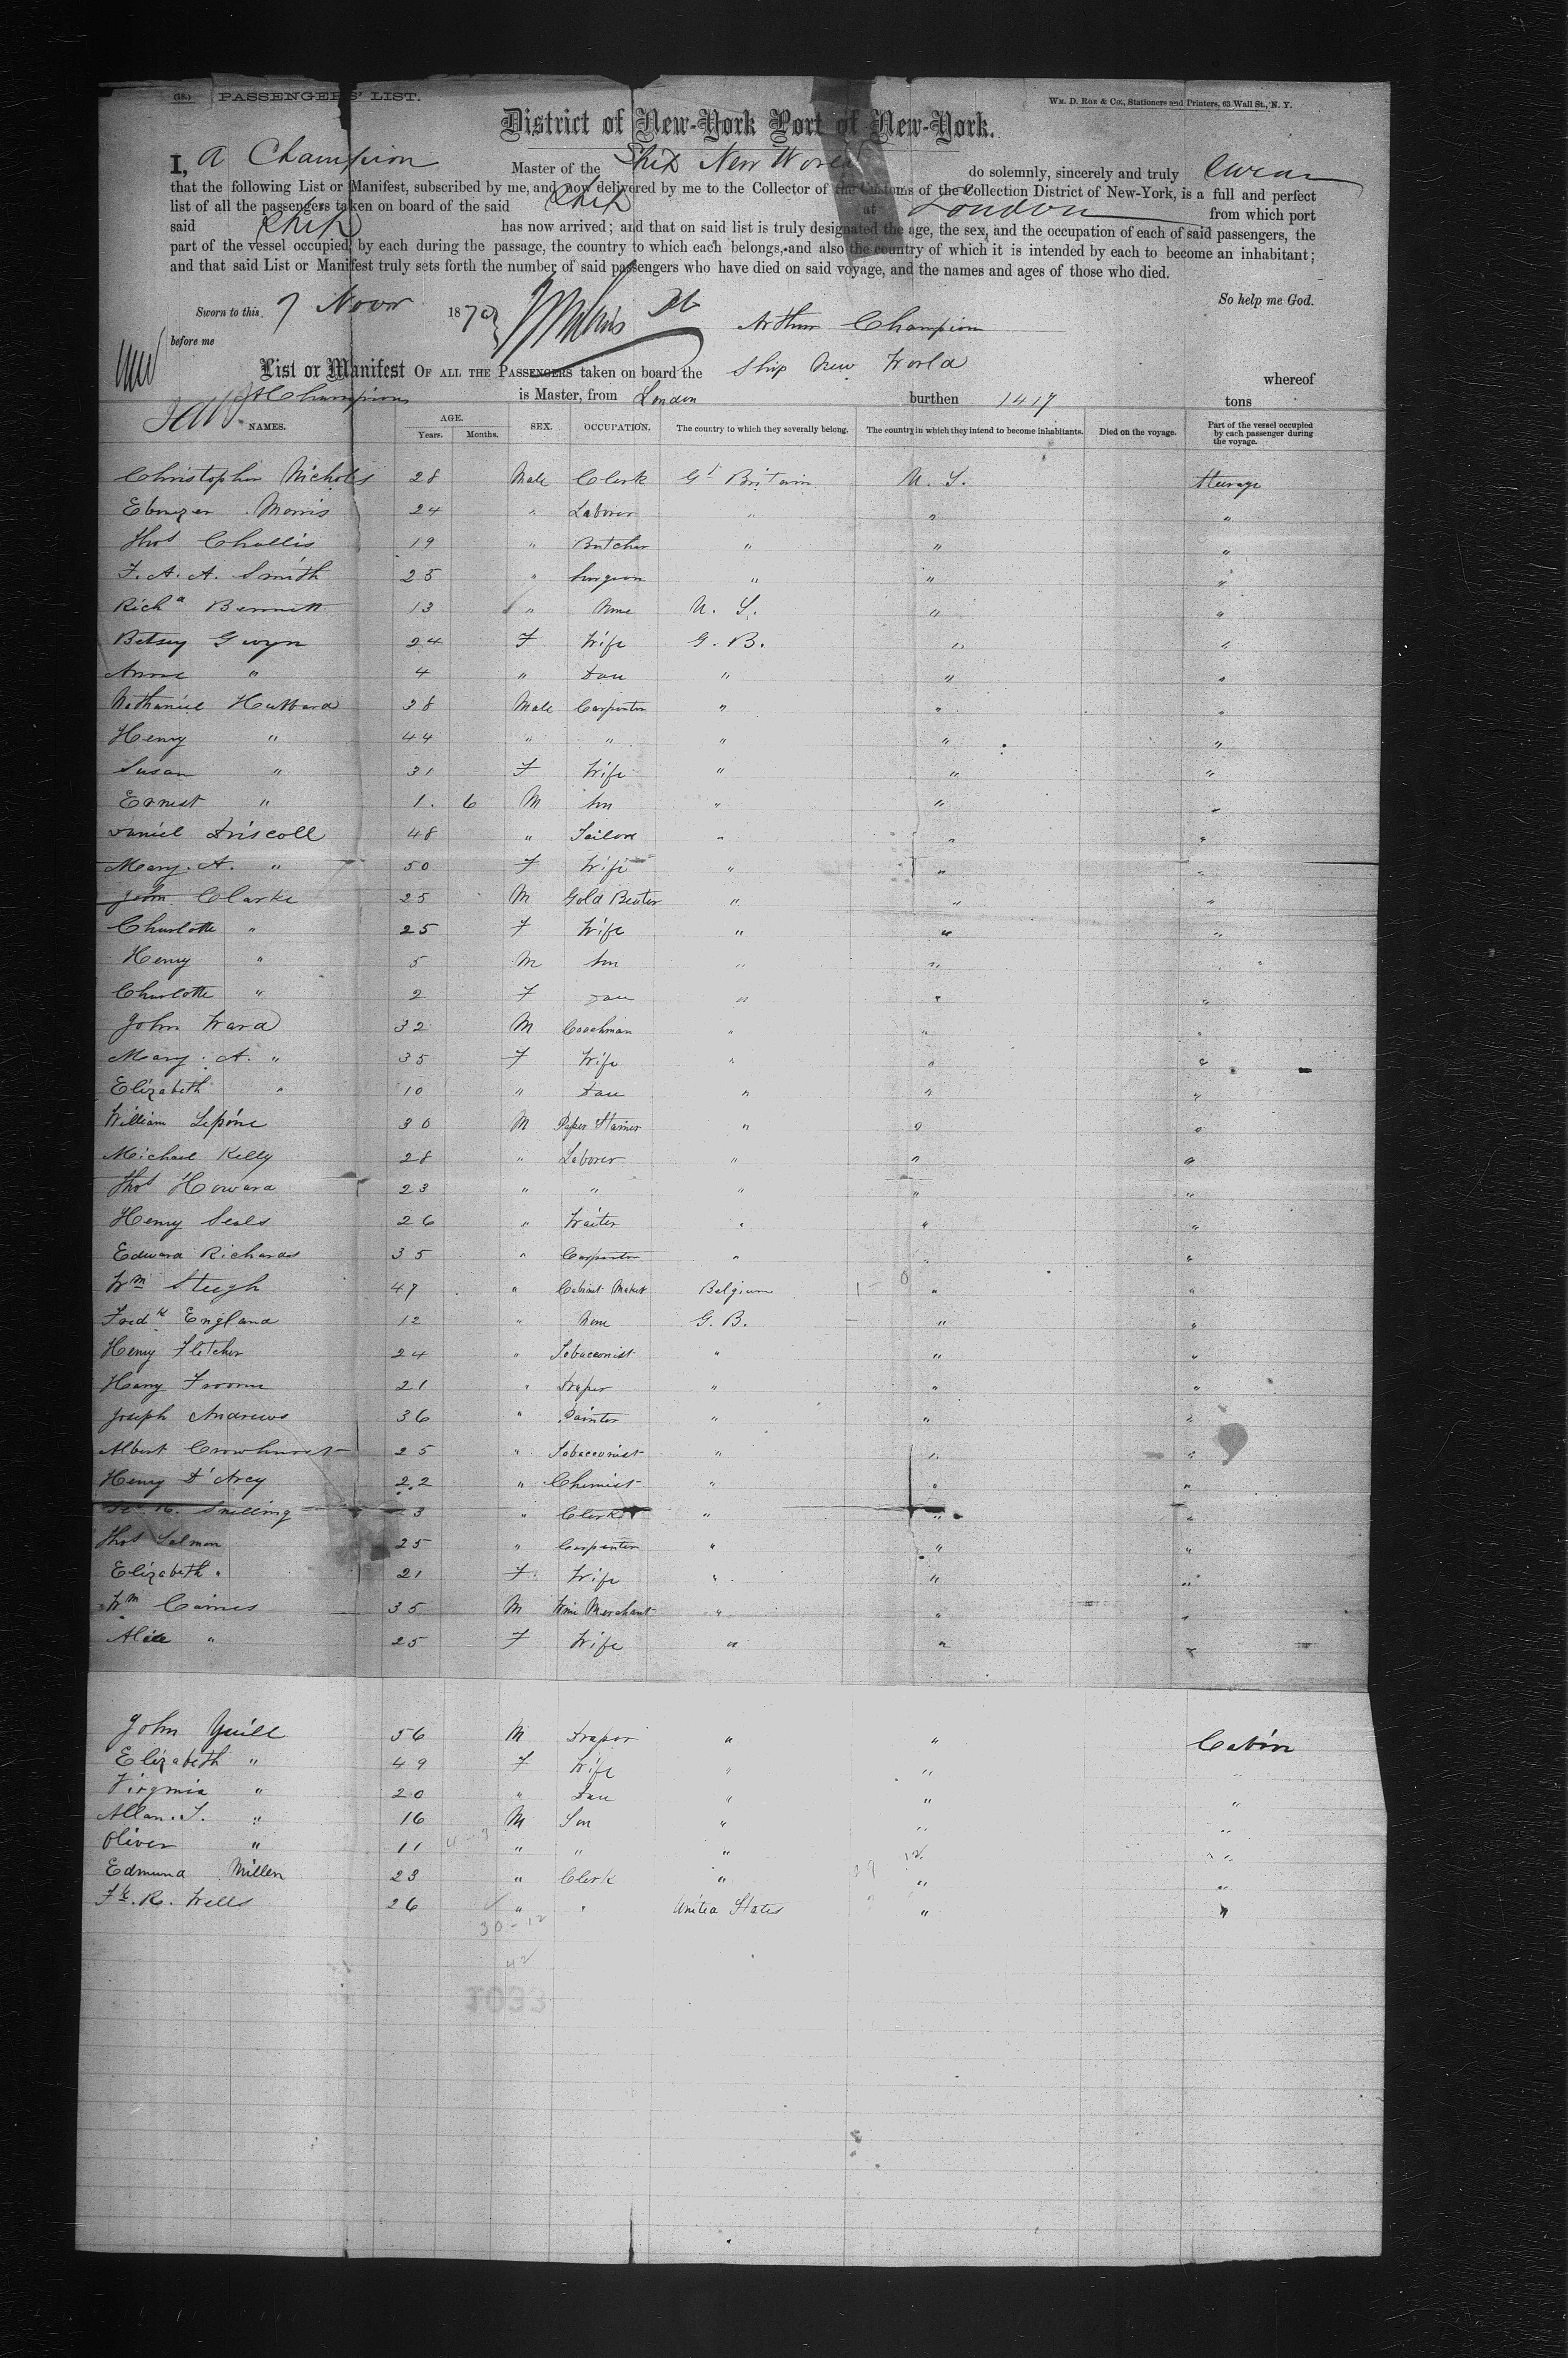 (18.) PASSENGERS' LIST.
Wm. D. Roe & Co., Stationers and Printers, 63 Wall St., N. Y.
District of New-York Port of New-York.
I, A Champion Master of the Ship New World do solemnly, sincerely and truly swear
that the following List or Manifest, subscribed by me, and now delivered by me to the Collector of the Customs of the Collection District of New-York, is a full and perfect
list of all the passengers taken on board of the said Ship at London from which port
said Ship has now arrived; and that on said list is truly designated the age, the sex, and the occupation of each of said passengers, the
part of the vessel occupied by each during the passage, the country to which each belongs, and also the country of which it is intended by each to become an inhabitant;
and that said List or Manifest truly sets forth the number of said passengers who have died on said voyage, and the names and ages of those who died.
So help me God.
Sworn to this 7 Novr 1870
Arthur Champion
before me
List or Manifest OF ALL THE PASSENGERS taken on board the Ship New World whereof
A Champion is Master, from London burthen 1417 tons
NAMES. AGE. Years. Months. SEX. OCCUPATION. The country to which they severally belong. The country in which they intend to become inhabitants. Died on the voyage. Part of the vessel occupied by each passenger during the voyage.
Christopher Nichols 28 Male Clerk Gt Britain U. S. Steerage
Ebenezer Morris 24 " Laborer " " "
Thos Challis 19 " Butcher " " "
F. A. A. Smith 25 " Surgeon " " "
Richd Bennett 13 " None U. S. " "
Betsey Gwyn 24 F Wife G. B. " "
Anne " 4 " Dau " " "
Nathaniel Hubbard 38 Male Carpenter " " "
Henry " 44 " " " " "
Susan " 31 F Wife " " "
Ernest " 1. 6 M Son " " "
Daniel Driscoll 48 " Tailor " " "
Mary. A. " 50 F Wife " " "
John Clarke 25 M Gold Beater " " "
Charlotte " 25 F Wife " " "
Henry " 5 M Son " "
Charlotte " 2 F Dau " " "
John Ward 32 M Coachman " " "
Mary. A. " 35 F Wife " " "
Elizabeth " 10 " Dau " " "
William Lepine 30 M Paper Stainer " " "
Michael Kelly 28 " Laborer " " "
Thos Howard 23 " " " " "
Henry Seals 26 " Waiter " " "
Edward Richards 35 " Carpenter " " "
Wm Steegh 47 " Cabinet Maker Belgium " "
Fredk England 12 " None G. B. " "
Henry Fletcher 24 " Tobacconist " " "
Harry Froome 21 " Draper " " "
Joseph Andrews 36 " Painter " " "
Albert Crowhurst 25 " Tobacconist " " "
Henry D'Arcy 22 " Chemist " " "
Snelling 3 " Clerk " " "
Thos Salmon 25 " Carpenter " " "
Elizabeth " 21 F Wife " " "
Wm Caines 35 M Wine Merchant " " "
Alice " 25 F Wife " " "
John Quill 56 M Draper " " Cabin
Elizabeth " 49 F Wife " " "
Virginia " 20 " Dau " " "
Allan. T. " 16 M Son " " "
Oliver " 11 " " " " "
Edmund Millen 23 " Clerk " " "
Fk. R. Wells 26 " " United States " "
30-12
42
1033